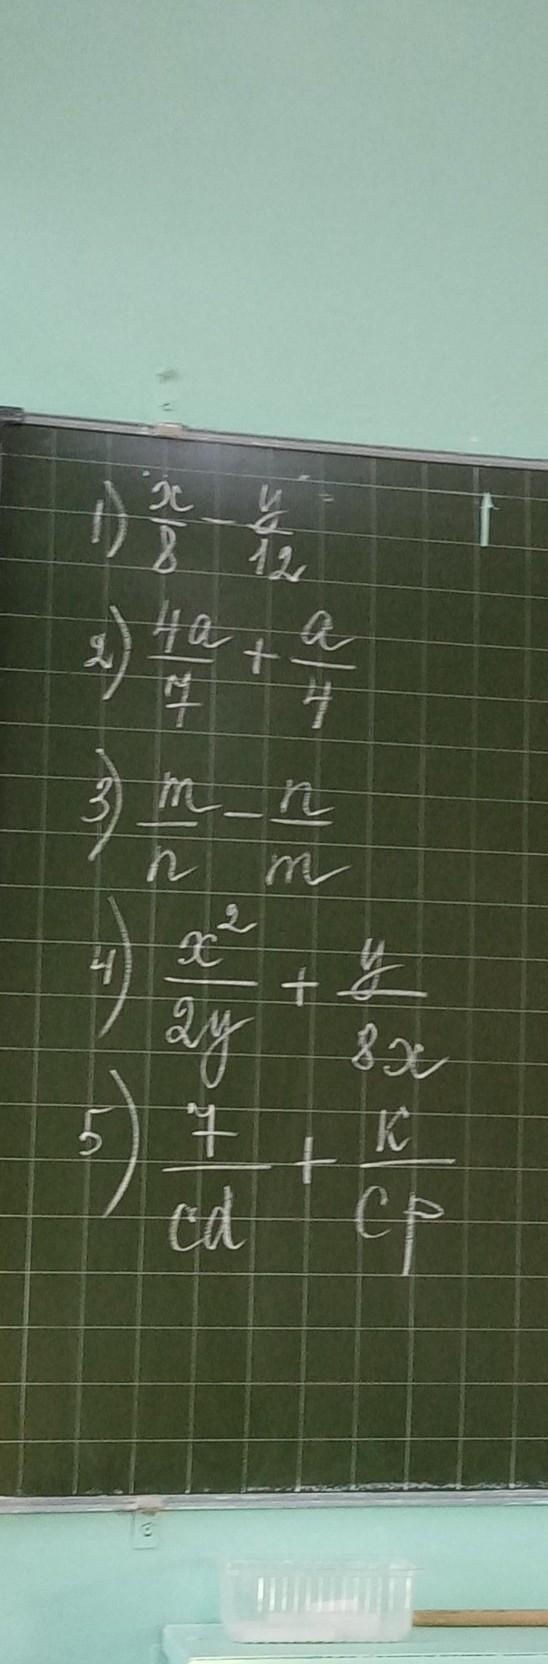 1) x/8 - y/12 =
2) 4a/7 + a/4
3) m/n - n/m
4) x²/2y + y/8x
5) 7/cd + k/cp